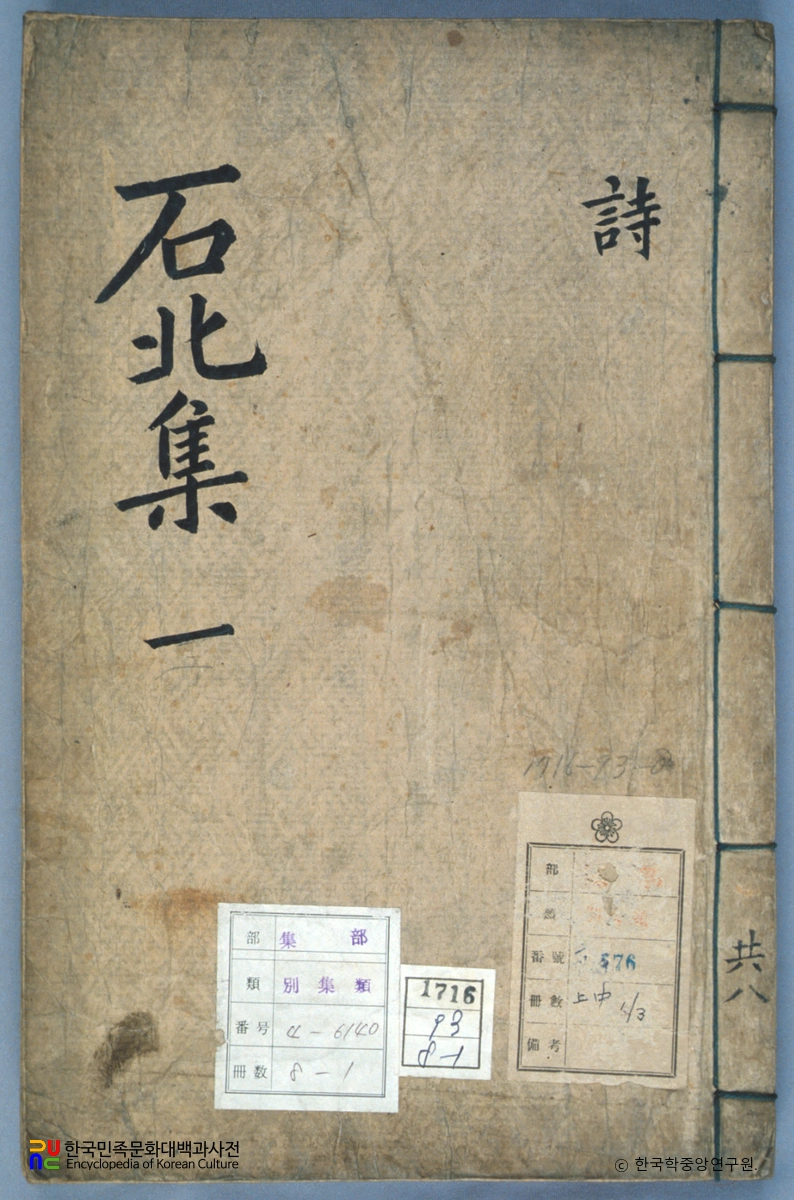 石北集 一
詩
共八
1716-93-8
部 集部
類 別集類
番号 4-6140
冊数 8-1
1716
93
8-1
部
類
番號 576
冊數 上中 1/3
備考
한국민족문화대백과사전
Encyclopedia of Korean Culture
ⓒ 한국학중앙연구원.